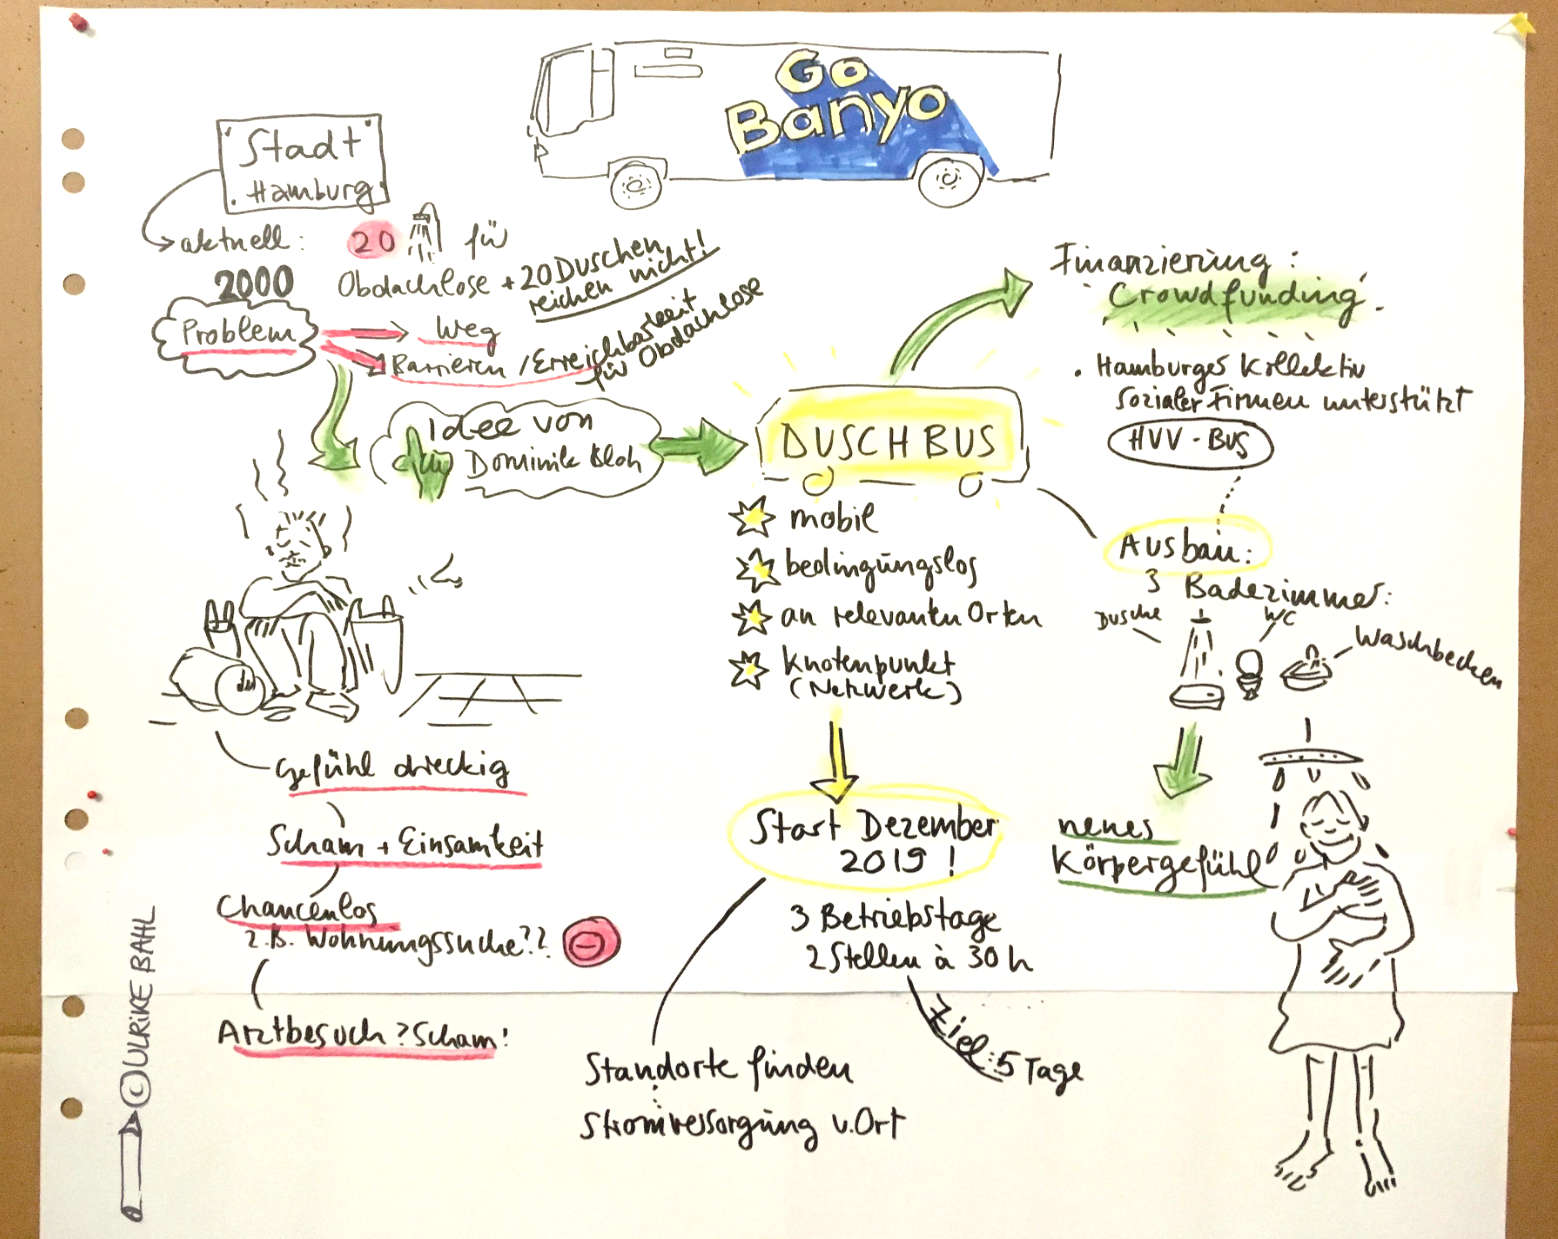 Go
Banyo
Stadt
Hamburg
aktuell: 20 für
2000 Obdachlose + 20 Duschen
reichen nicht!
Problem
Weg
Barrieren / Erreichbarkeit
für Obdachlose
Idee von
Dominik Bloh
DUSCHBUS
mobil
bedingungslos
an relevanten Orten
Knotenpunkt
(Netzwerk)
Start Dezember
2019!
3 Betriebstage
2 Stellen à 30 h
Ziel: 5 Tage
Standorte finden
Stromversorgung v. Ort
Finanzierung:
Crowdfunding
• Hamburges Kollektiv
sozialer Firmen unterstützt
HVV-BUS
Ausbau:
3 Badezimmer:
Dusche
WC
Waschbecken
neues
Körpergefühl
Gefühl dreckig
Scham + Einsamkeit
Chancenlos
z.B. Wohnungssuche??
Arztbesuch? Scham!
© ULRIKE BAHL